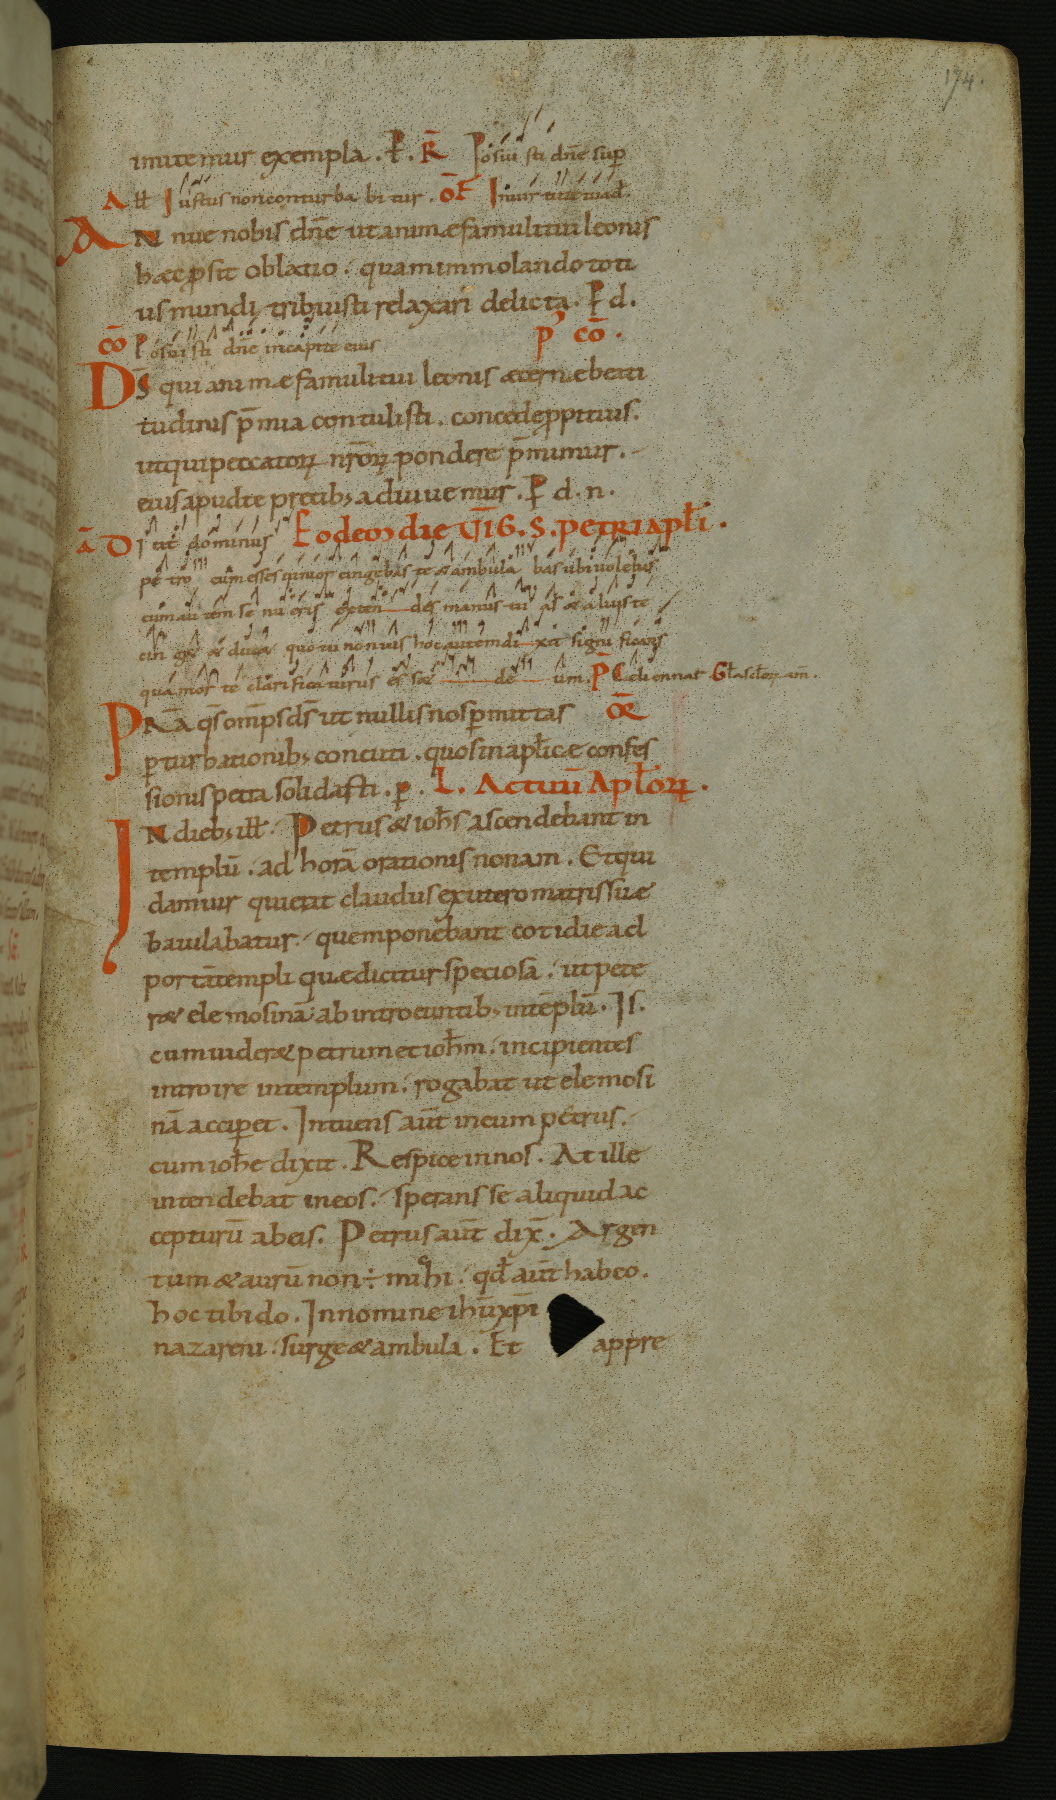 174.
imitemur exempla. P. R̄ Posui sti dn̄e sup
All Iustus non conturba bi tur. OF In uir tute tua d
AN nue nobis dn̄e ut animę famuli tui leonis
hæc p̄sit oblatio. quam immolando toti
us mundi tribuisti relaxari delicta. P d.
CŌ Posui sti dn̄e in capite eius P' CŌ.
DS̄ qui animæ famuli tui leonis æternæ beati
tudinis p̄mia contulisti. concede ppitius.
ut qui peccatorꝝ nr̄orꝝ pondere p̄mimur.
eius apud te precib; adiuuemur. P d. n.
Ā DIcit dominus Eodem die UIG. S. PETRI APL̄I.
pe tro cum esses iunior cingebas te & ambula bas ubi uolebas
cum au tem se nu eris exten des manus tu as & alius te
cin g& & duc& quo tu non uis hoc autem di xit signi ficans
qua mor te clari ficaturus es s& de um. P̄S Celi ennar Gła scłorꝝ am̄.
PRA q̄s om̄ps d̄s ut nullis nos pmittas OR̄
pturbationib; concuti. quos in apl̄icæ confes
sionis petra solidasti. p. L. ACTUU̅ APL̄ORꝝ.
IN dieb; ill̄. Petrus & ioh̄s ascendebant in
templū. ad horā orationis nonam. Et qui
dam uir qui erat claudus ex utero matris suæ
baiulabatur. quem ponebant cotidie ad
portā templi quæ dicitur speciosa. ut pete
r& elemosinā ab introeuntib; in tēplū. Is.
cum uider& petrum et ioh̄m. incipientes
introire in templum. rogabat ut elemosi
nā acciperet. Intuens aūt in eum petrus.
cum ioh̄e dixit. Respice in nos. At ille
intendebat in eos. sperans se aliquid ac
cepturū ab eis. Petrus aūt dix̄. Argen
tum & aurū non ÷ mihi. qd̄ aūt habeo.
hoc tibi do. In nomine ihū xp̄i
nazareni. surge & ambula. Et appre